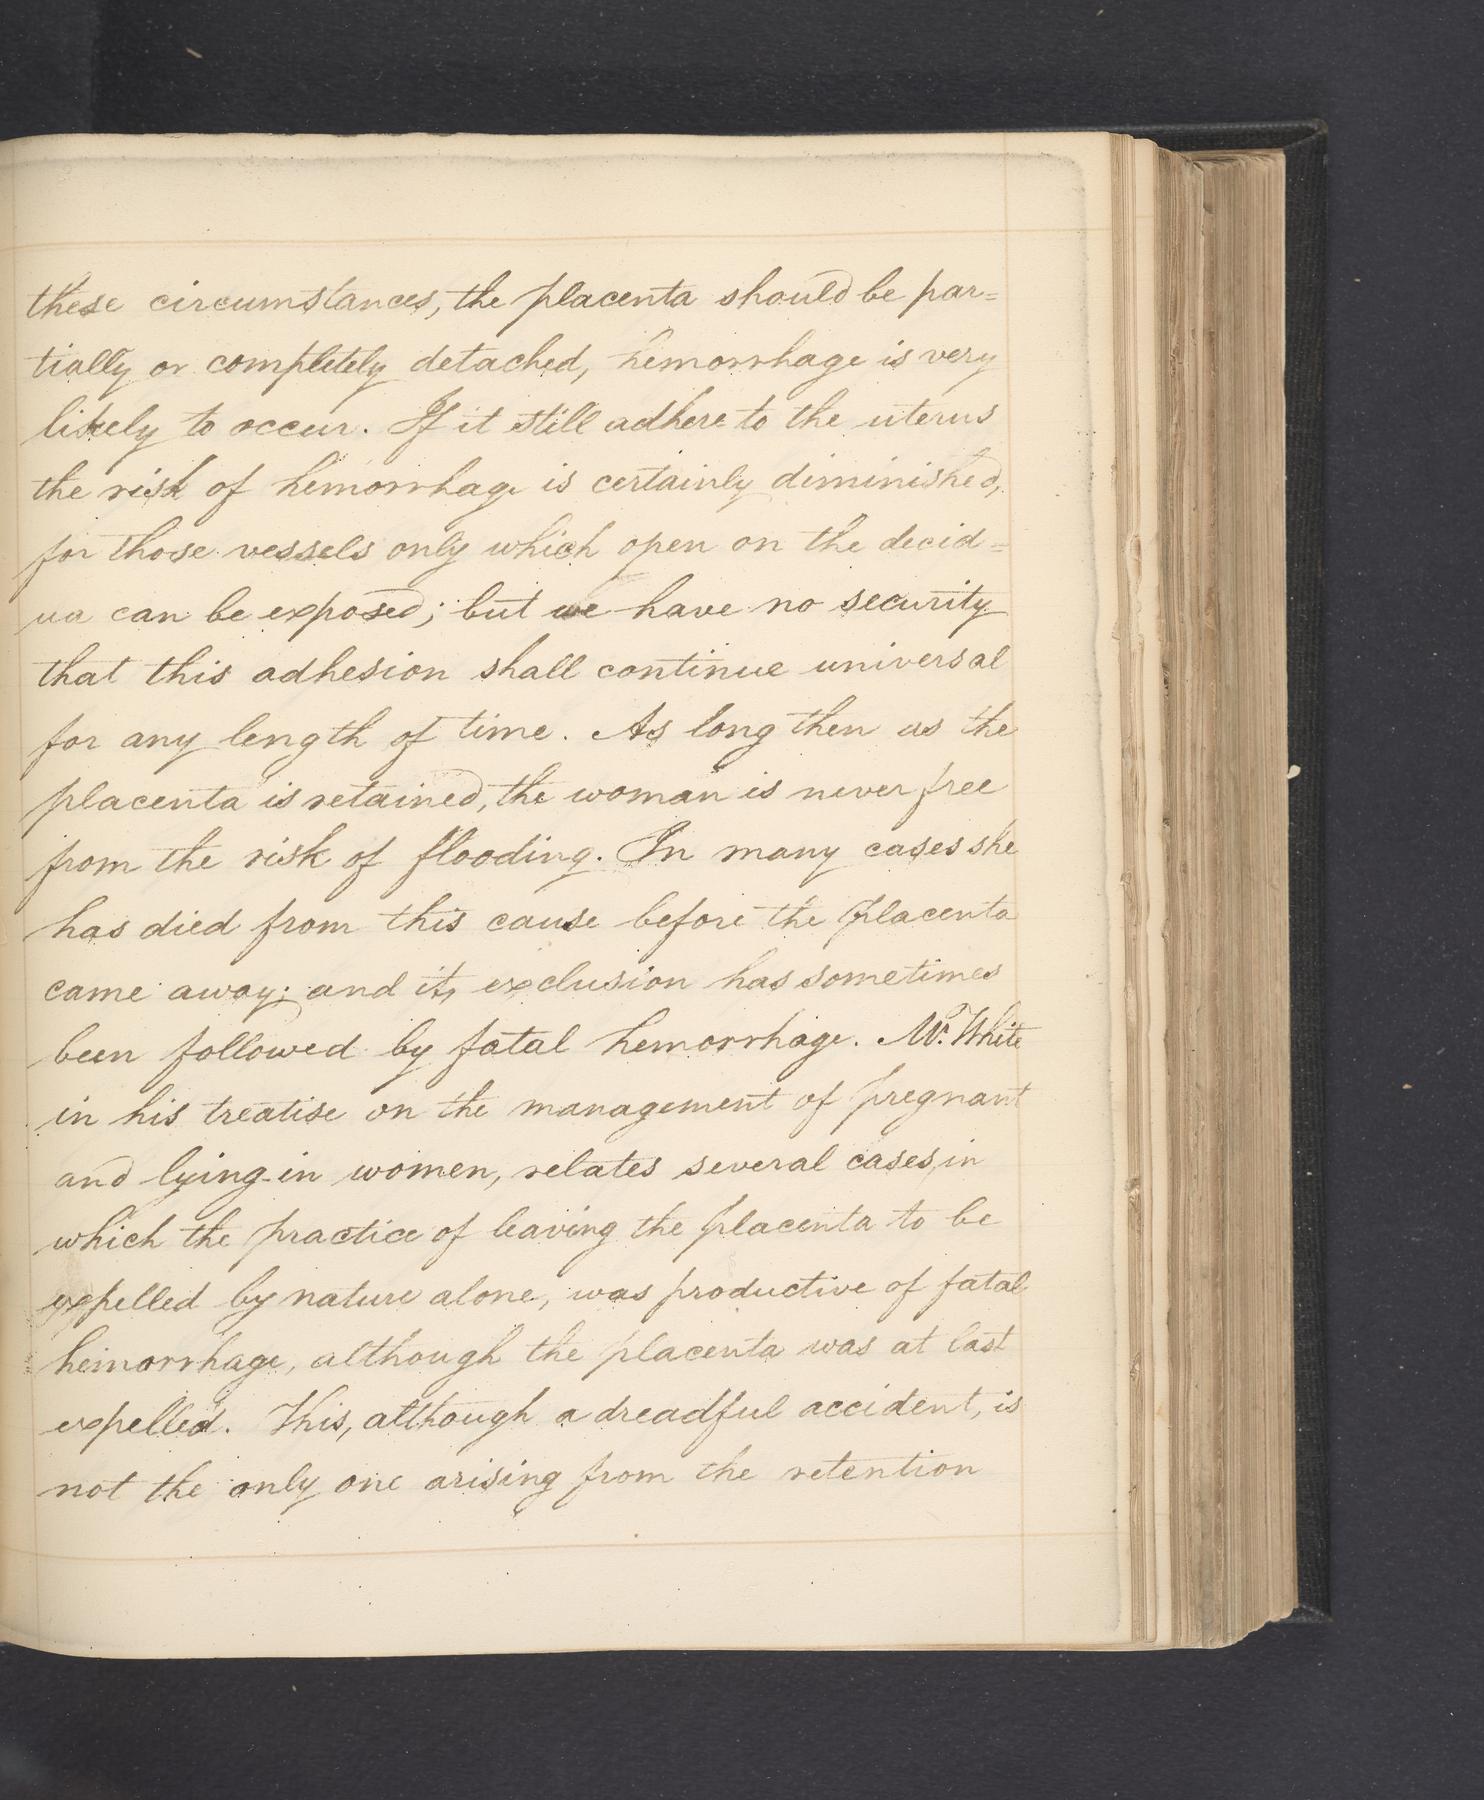 these circumstances, the placenta should be par=
tially or completely detached, hemorrhage is very
likely to occur. If it still adhere to the uterus
the risk of hemorrhage is certainly diminished,
for those vessels only which open on the decid=
ua can be exposed; but we have no security
that this adhesion shall continue universal
for any length of time. As long then as the
placenta is retained, the woman is never free
from the risk of flooding. In many cases she
has died from this cause before the placenta
came away; and its exclusion has sometimes
been followed by fatal hemorrhage. Mr. White
in his treatise on the management of pregnant
and lying-in women, relates several cases, in
which the practice of leaving the placenta to be
expelled by nature alone, was productive of fatal
hemorrhage, although the placenta was at last
expelled. This, although a dreadful accident, is
not the only one arising from the retention